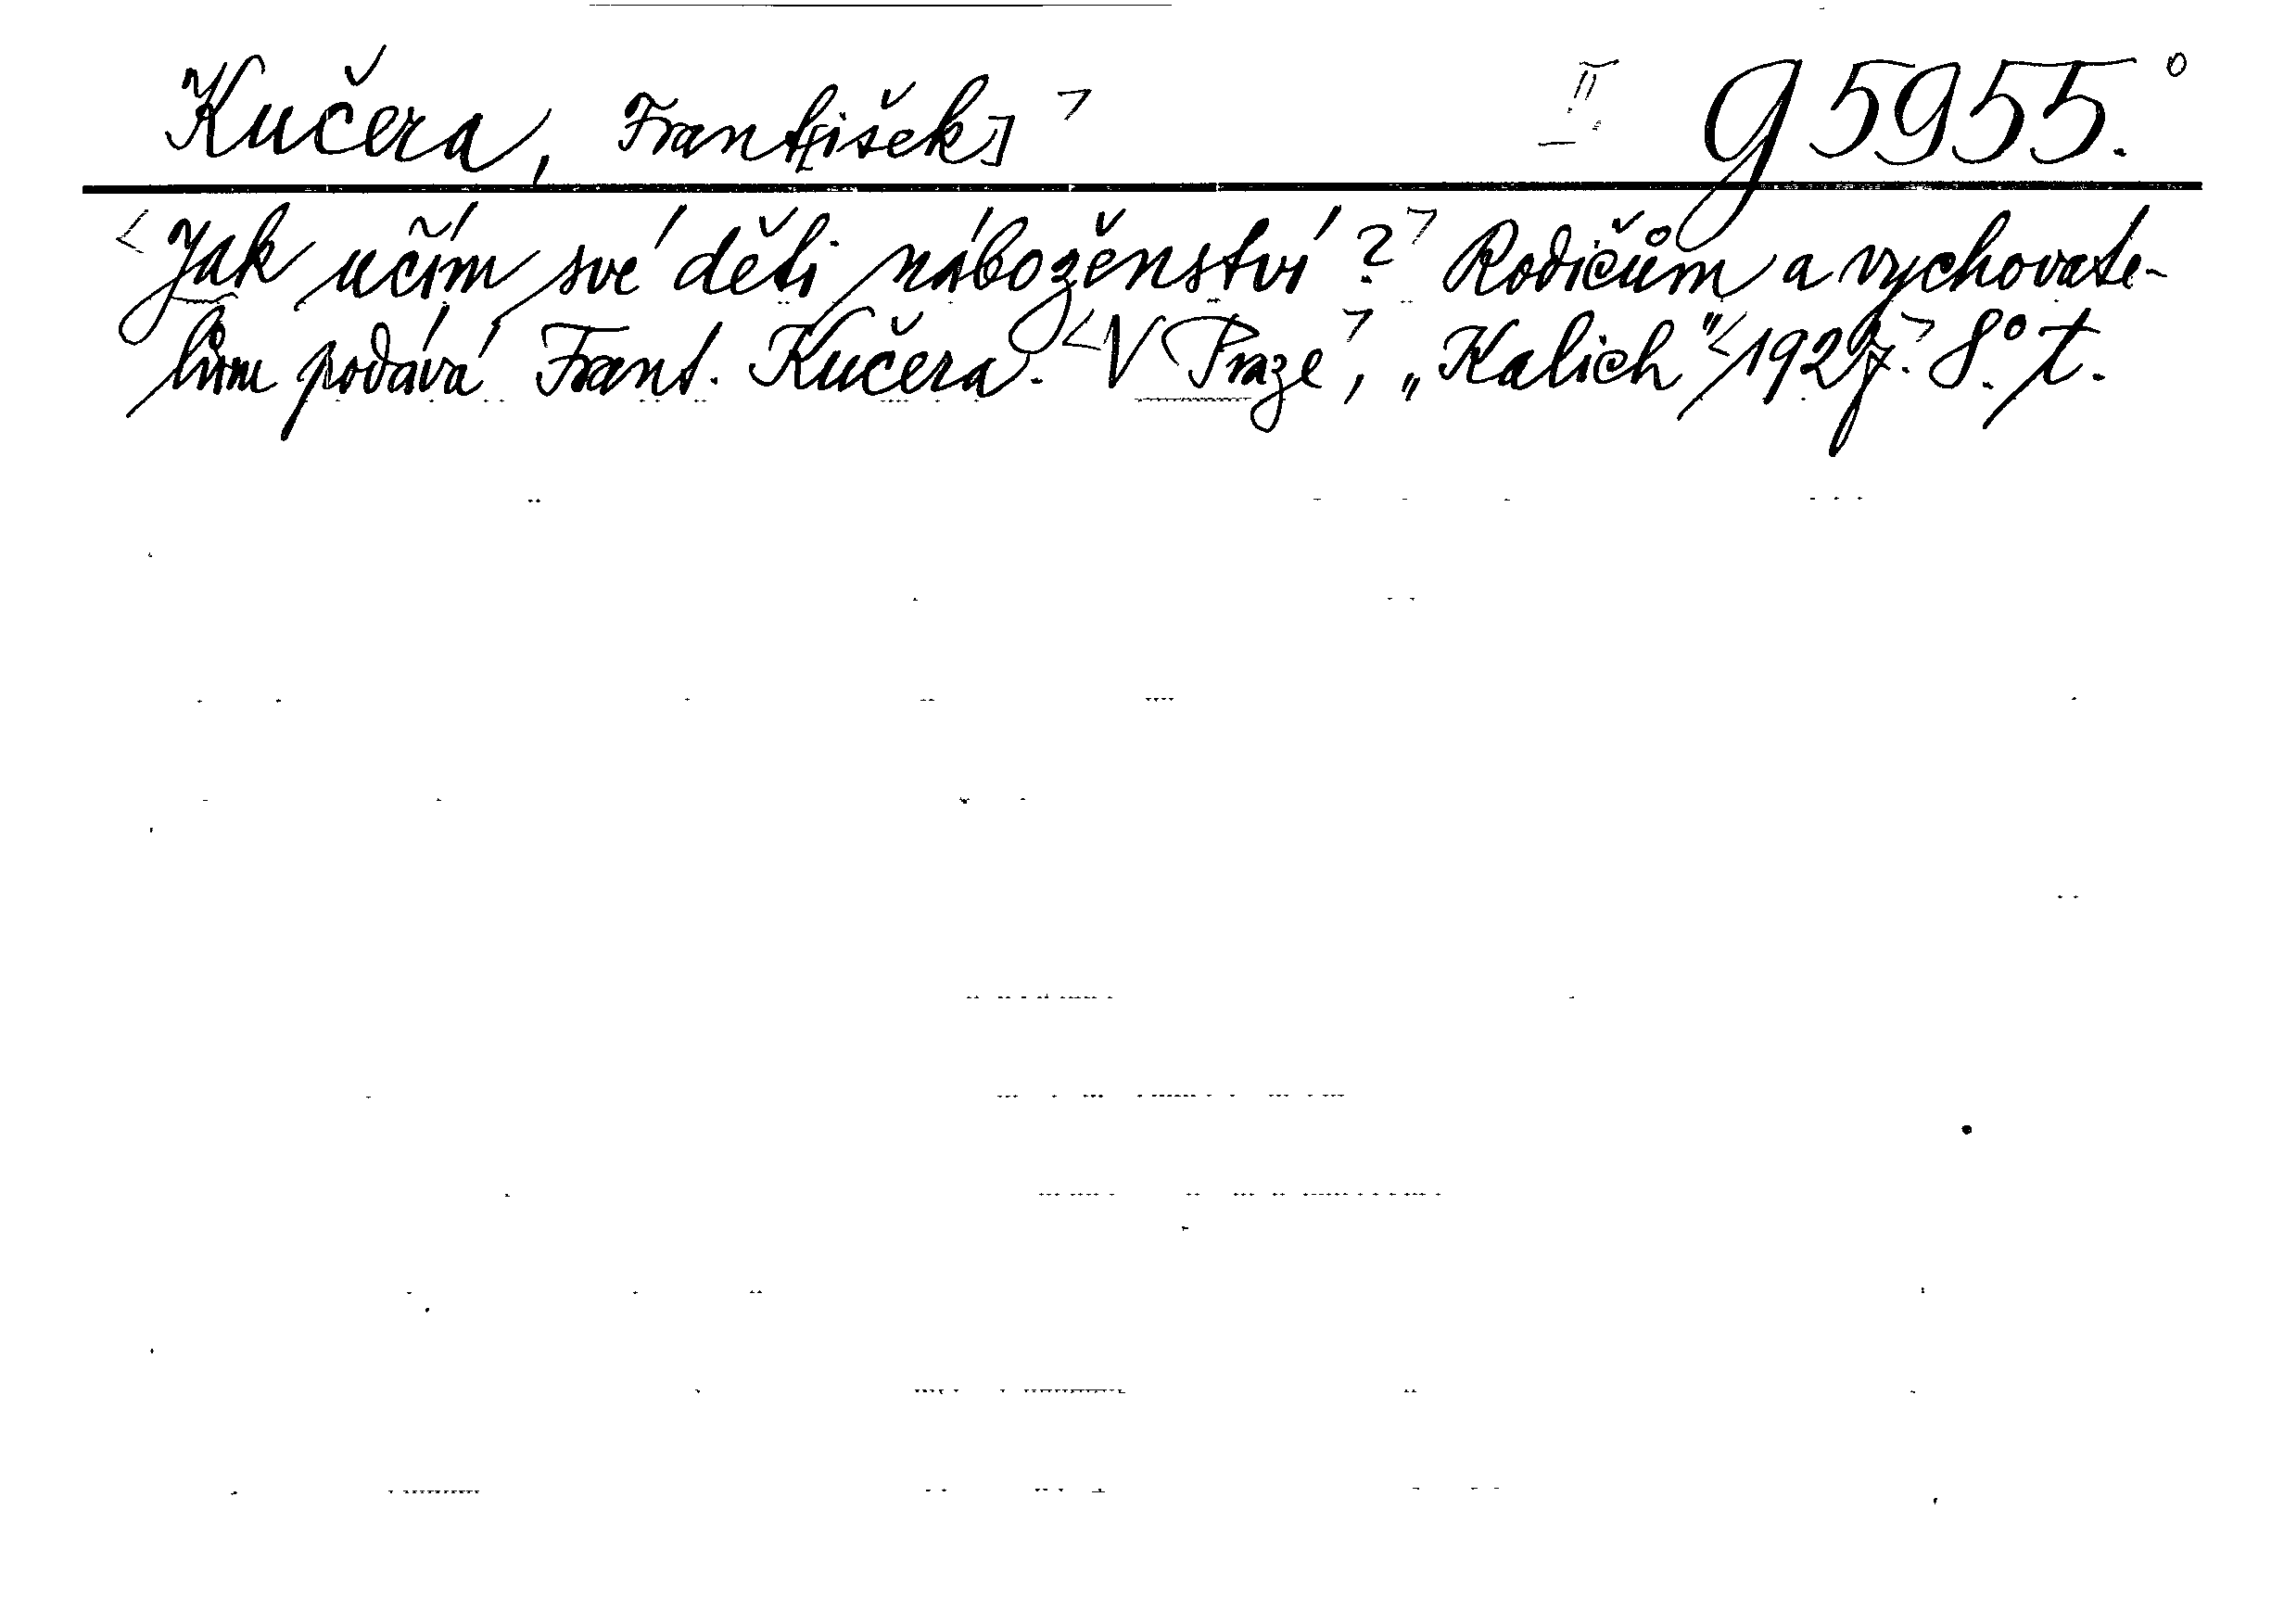 Kučera, Frant[išek] ⟩ II. g 5955.°
<Jak učím své děti náboženství?> Rodičům a vychovate-
lům podává Frant. Kučera. <V Praze>, „Kalich" <1927.> 8.° t.